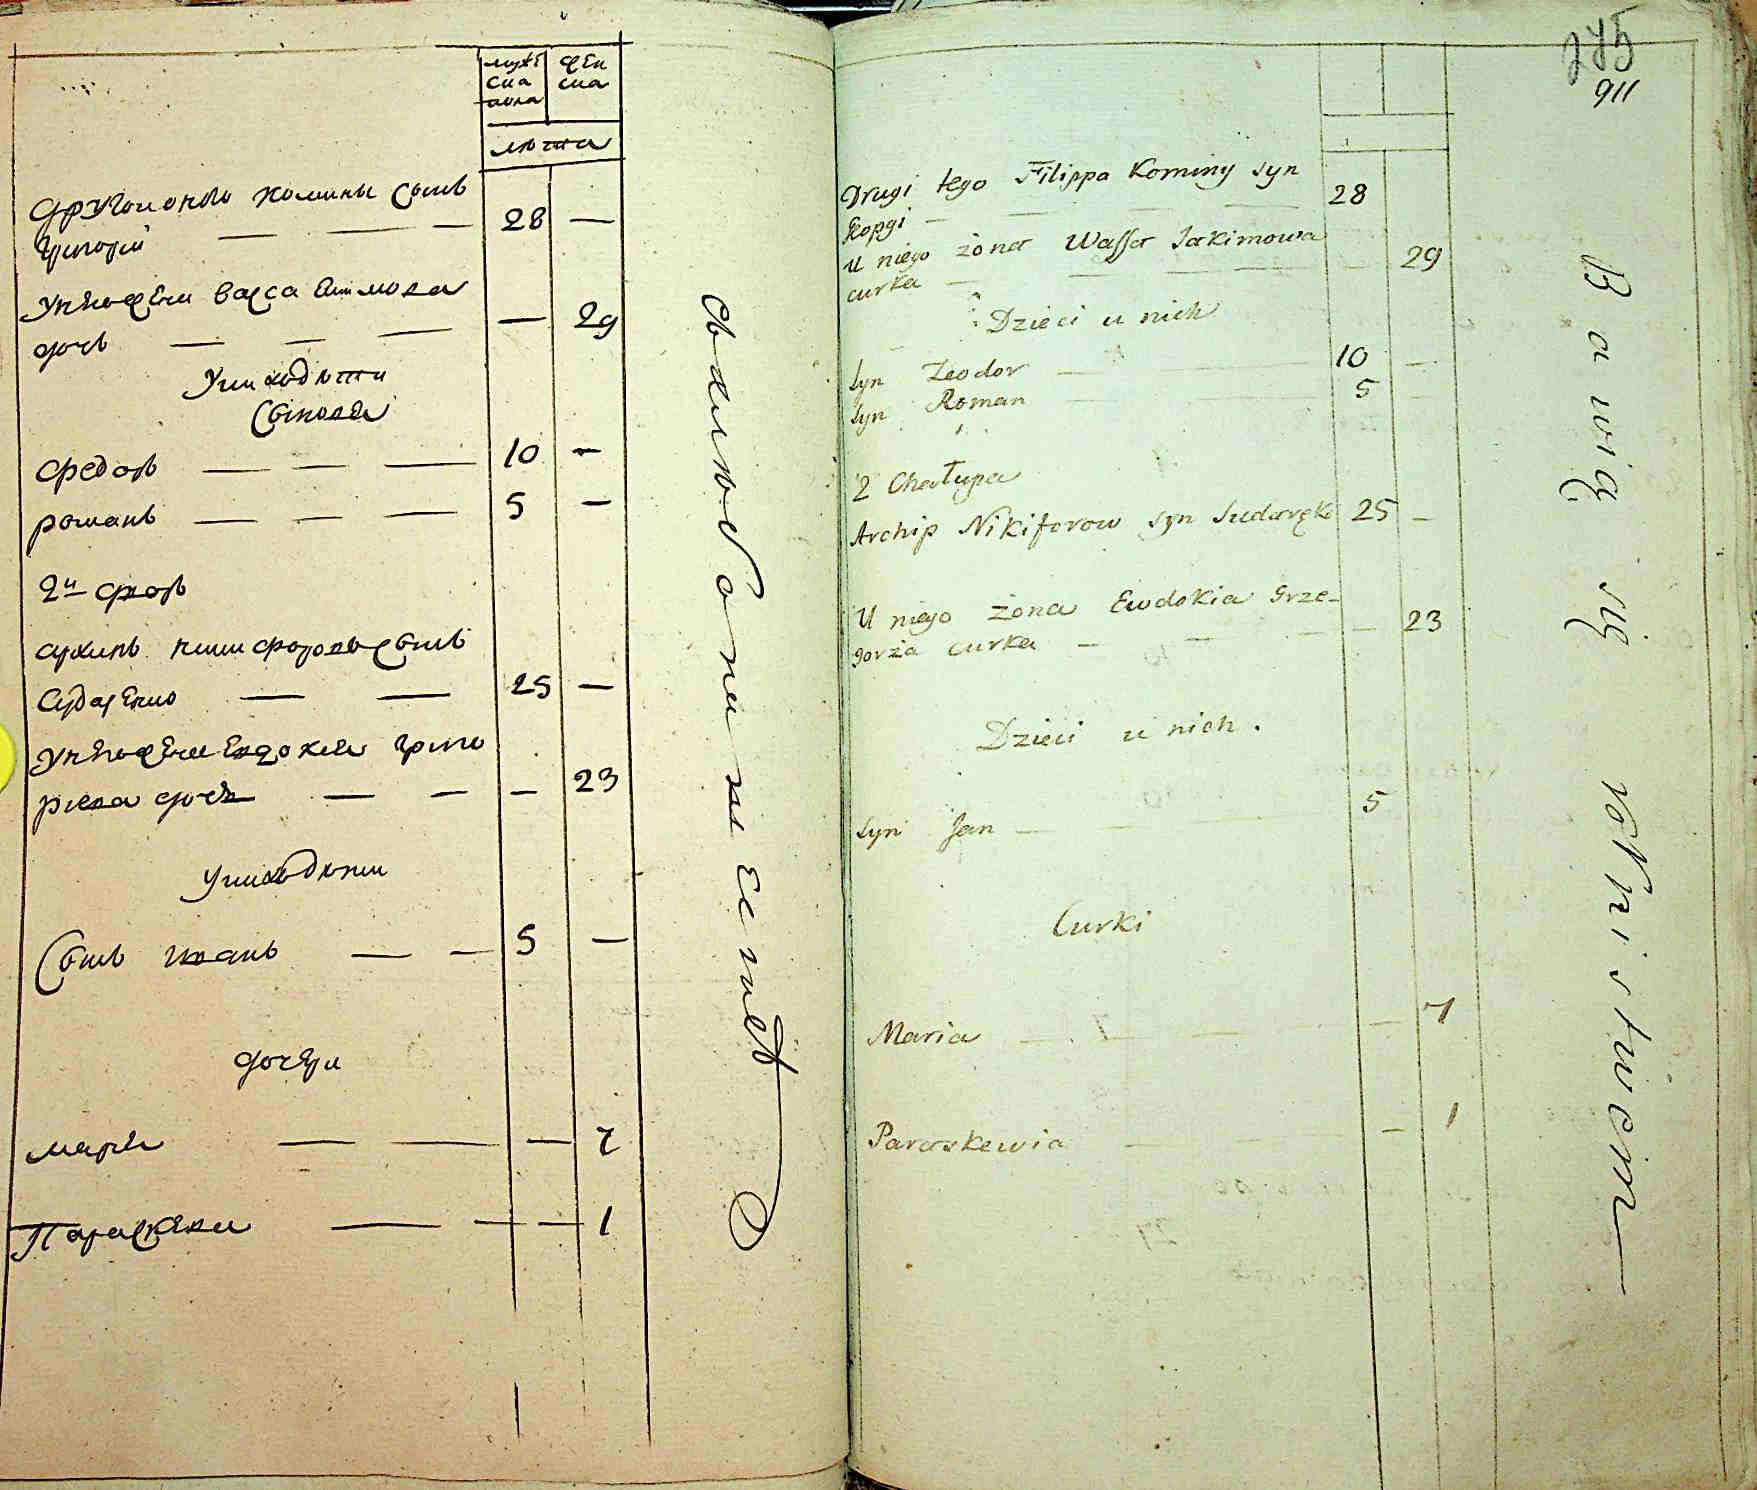 муже
ска
пола
жен
ска
лѣта
другои онаго комины сынъ
григорей 28 —
у него жена васса екимова
дочь — 29
у них дѣти
сыновья
федоръ 10 —
романъ 5 —
2й дворъ
архипъ никифоровъ сынъ
сударенко 25 —
у него жена евдокия григо
риева дочь — 23
у них дѣти
сынъ иванъ 5 —
дочери
мария — 7
Параскевия — 1
275
911
Drugi tego Filippa Kominy syn
28
U niego żona Wassa Jakimowa
curka — 29
Dzieci u nich
syn Teodor 10 —
syn Roman 5
2 Chałupa
Archip Nikiforow syn Sudaręko 25 —
U niego żona Ewdokia Grze-
gorza curka — 23
Dzieci u nich.
syn Jan 5
Curki
Maria — 7
Paraskewia — 1
Bawią się